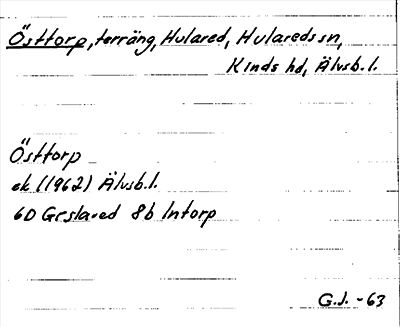 Östtorp, terräng, Hulared, Hularedssn,
Kinds hd, Älvsb. l.
Östtorp
ek (1962) Älvsb. l.
6D Gislaved 8b Intorp
G.J. -63